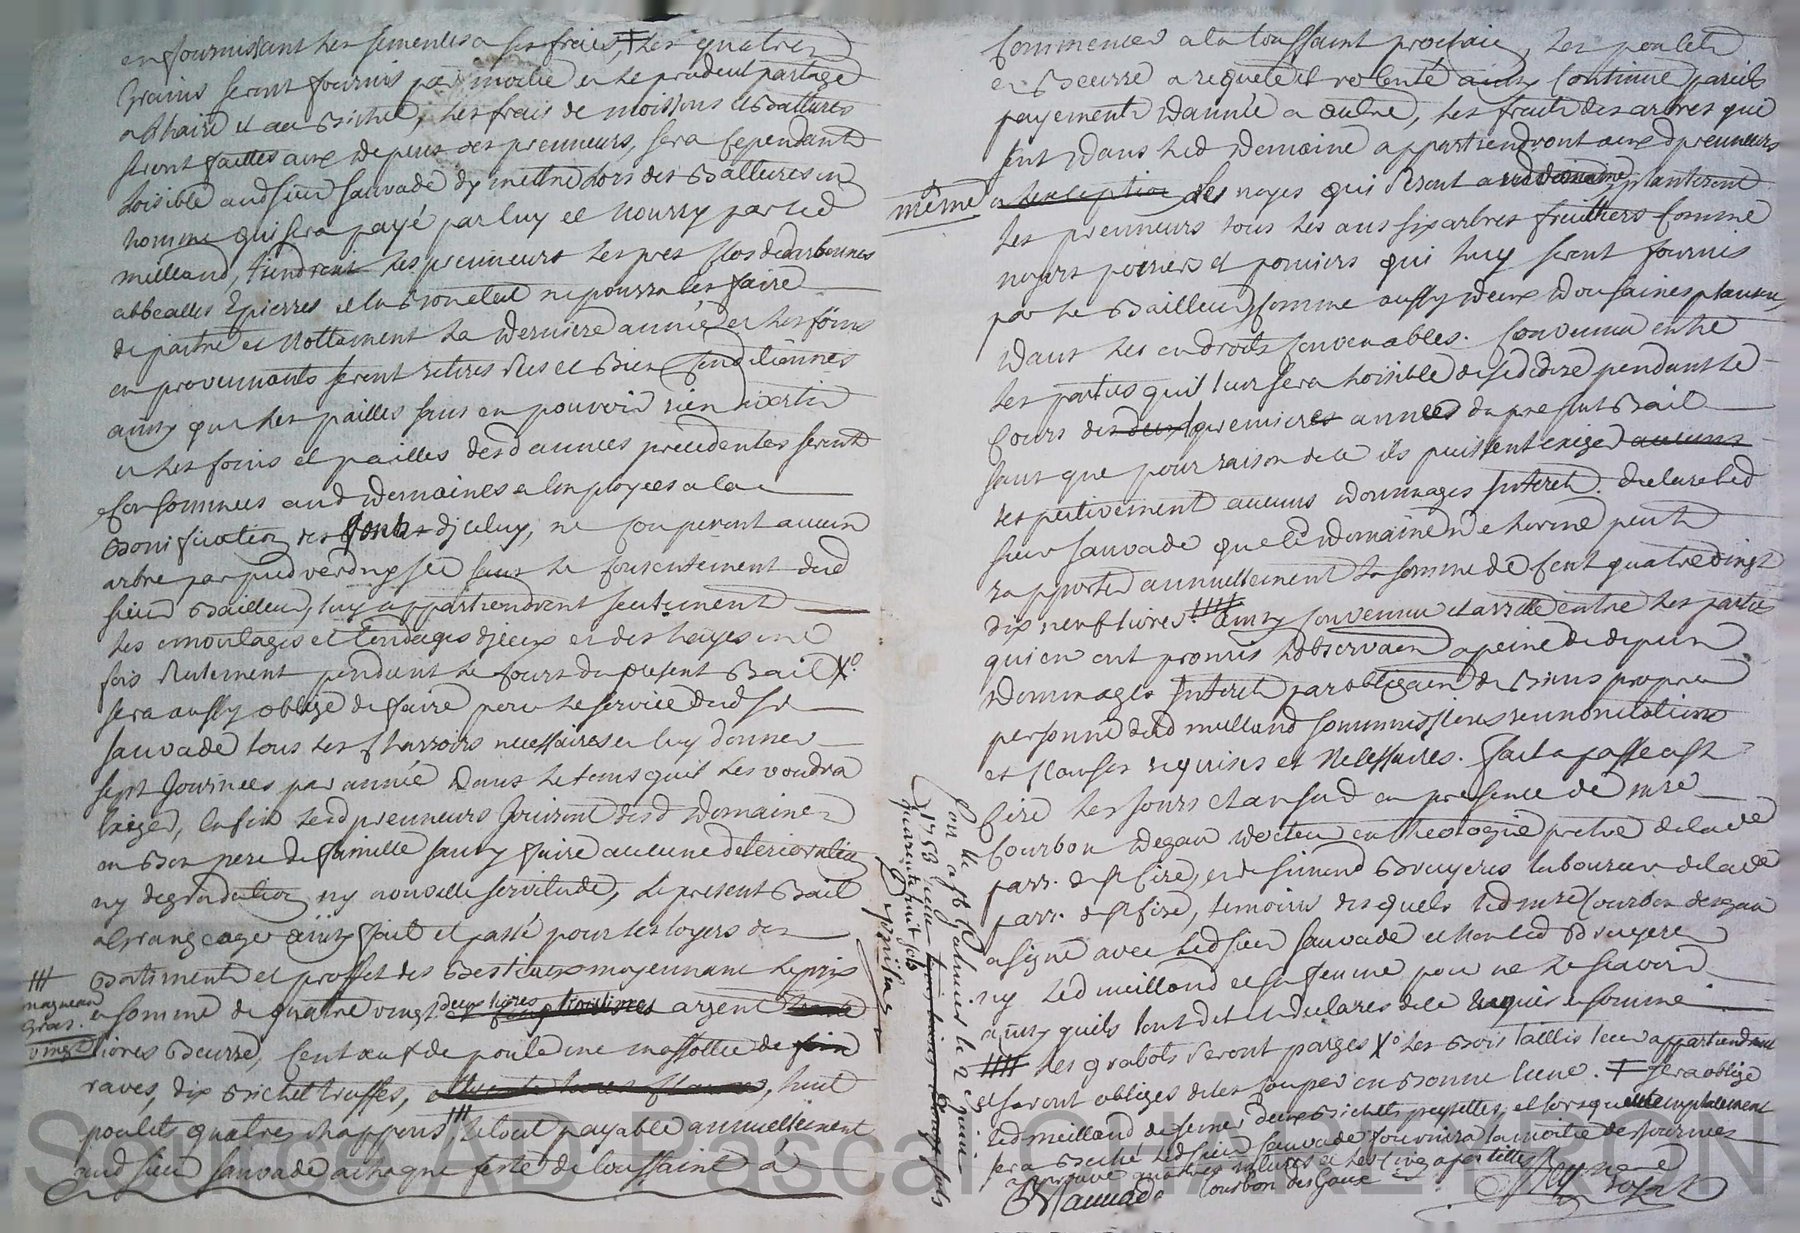 en fournissant les semences a ses frais, ‡ les quatre
grains seront fournis par moitié et le produit partagé
a l'haire et au Bichet, les frais de moissons et Battures
seront faittes aux depens des prenneurs, sera cependant
loisible audsieur Sauvade dy mettre lors des Battures un
homme qui sera payé par luy et nourry par led
meilland, tiendront les prenneurs les pres clos de
abbealles Epierres et la ne pourra les faire
de paitre et nottament la derniere année et les foins
en provennants seront retirés secs et Bien Conditionnés
ainsy que les pailles sans en pouvoir rien divertir
et les foins et pailles desd annees precedentes seront
Consommées aud Domaines employees a la
Bonification des fonds djceluy, ne Couperont aucun
arbre par pied verd ny sec sans le Consentement dud
sieur Bailleur, luy appartiendront seulement
les emondages et tondages djceux et des hayes une
fois seulement pendant le Cours du present Bail X°.
sera aussy obligé de faire pour le service dud sr
Sauvade tous les Charrois necessaires et luy donner
sept Journées par année dans le tems quil les voudra
Exiger, Enfin lesd prenneurs Jouiront desd Domaine
en Bon pere de famille sans y faire aucune deterioration
ny degradation ny nouvelle servitude, le present Bail
a Grangeage ainsy fait et passé pour les loyers des
Batiments et proffit des Bestiaux moyennant le prix
et somme de quatre vingt deux livres argent
magneau
gras.
vingt livres Beurre, Cent œufs de poule une de
raves, dix Bichet truffes, huit
poulets quatre chappons le tout payable annuellement
aud sieur Sauvade a chaque feste de toussaint a
Commencer a la toussaint prochain, les poulets
et Beurre a requete et volonté ainsy Continue pareils
payements d'année a autre, les fruits des arbres qui
sont dans led Domaine appartiendront aux d prenneurs
même les noyes qui seront planteront
les prenneurs tous les ans six arbres fruittiers Comme
noyers poiriers et pomiers qui luy seront fournis
par le Bailleur Comme aussy deux Dousaines
dans les endroits Convenables. Convenu entre
les parties quil leur sera loisible de se dedire pendant le
Cours des premiers années du present Bail
sans que pour raison de ce ils puissent exiger
respectivement aucuns Dommages Interets. Declare led
sieur Sauvade que led Domaine de peut
rapporter annuellement la somme de Cent quatre vingt
dix neuf livres. Ainsy Convenu et arreté entre les parties
qui en ont promis l'observaon a peine de depens
Dommages Interets par obligaon de Biens propres
personne dud meilland soummissions rennonciations
et Clauses requises et Necessaires. Fait et passé a St
Cire les Jours et an sud en presence de mre
Courbon Degaux docteur en theologie pretre de la de
parr. de St Cire, et de simond Bruyeres laboureur de la de
parr. de St Cire, temoins desquels led mre Courbon desgaux
a signé avec led sieur Sauvade et non led Bruyere
ny led meilland et sa femme pour ne le scavoir
ainsy quils l'ont dit et declarés de ce Enquis et sommés
les grabots seront partagés X° les Bois taillis leur appartiendront
et seront obligés de les Couper en Bonne lune. ‡ sera obligé
led meilland de semer deux Bichets peysettes, et lorsque
sera Beché led sieur Sauvade fournira la moitié des Journées
approuvé
Sauvade Courbon des Gaux
Conlle a St Galmier le 2e Juin
1753 Recu
quarante huit sols